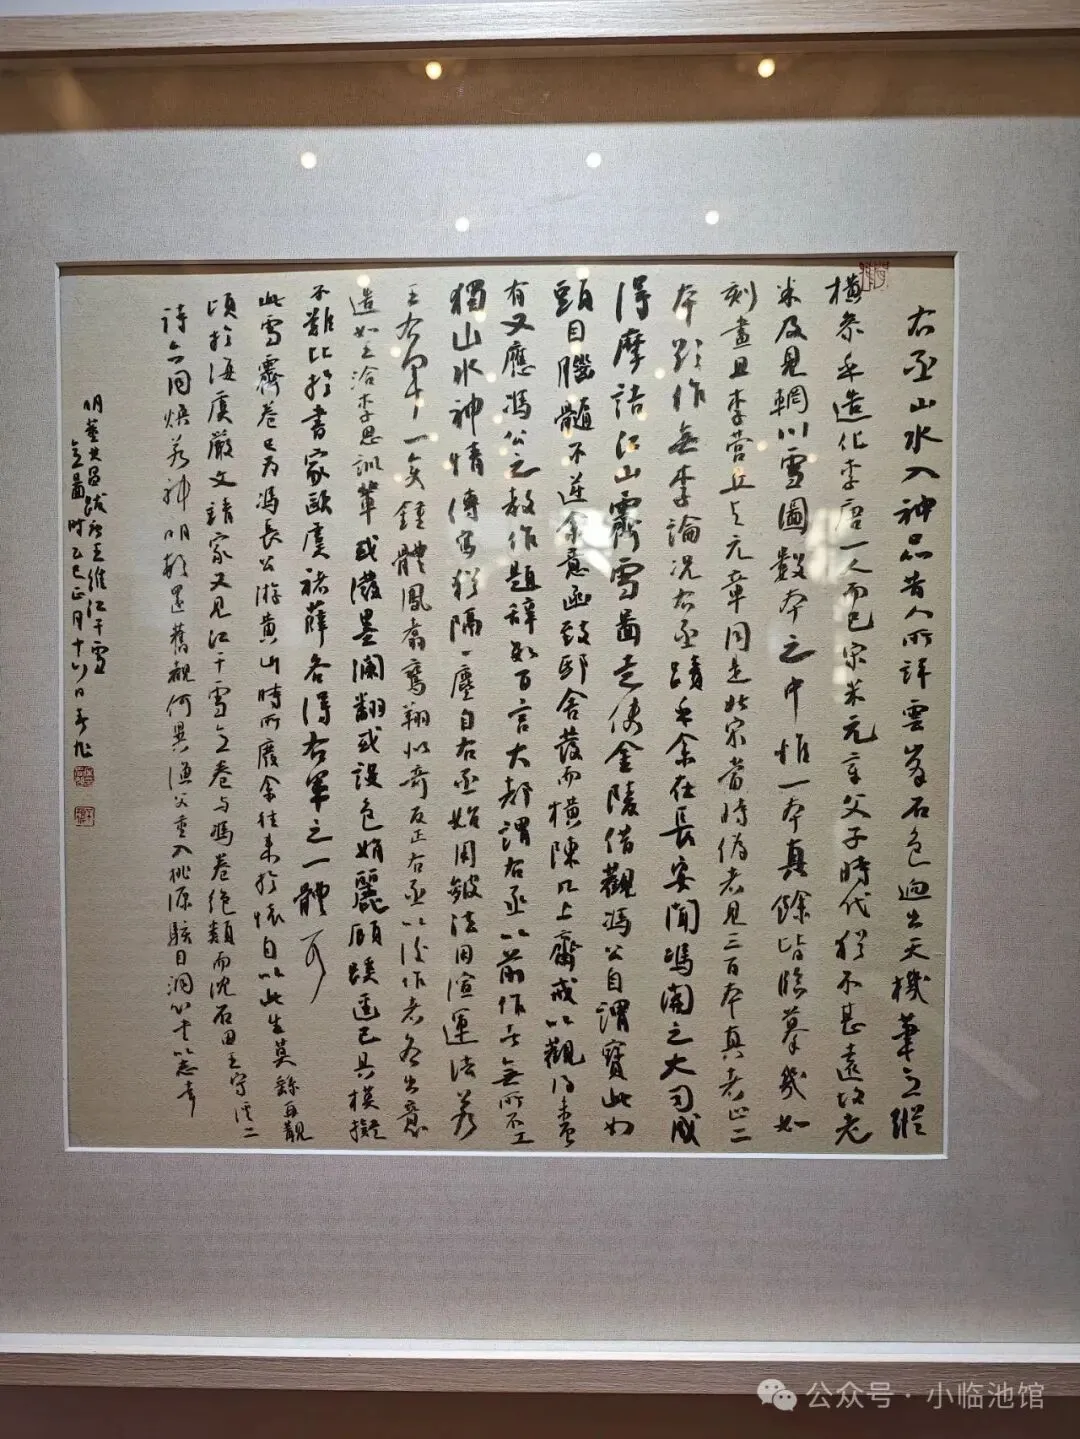 右丞山水入神品昔人所評雲峯石色迥出天機筆意縱
橫參乎造化李唐一人而已宋米元章父子時代猶不甚遠故老
米及見輞川雪圖數本之中惟一本真餘皆臨摹幾如
刻畫且李營丘與元章同是北宋當時偽者見三百本真者止二
本欲作無李論況右丞蹟乎余在長安聞馮開之大司成
得摩詰江山霽雪圖走使金陵借觀馮公自謂寶此如
頭目腦髓不逆余意函致邸舍發而橫陳几上齋戒以觀得未曾
有又應馮公之教作題辭數百言大都謂右丞以前作者無所不工
獨山水神情傳寫猶隔一塵自右丞始用皴法用渲運法若
王右軍一變鍾體鳳翥鸞翔似奇反正右丞以後作者各出意
造如王洽李思訓輩或潑墨瀾翻或設色娟麗顧蹊逕已具模擬
不難比於書家歐虞褚薛各得右軍之一體耳
此雪霽卷已為馮長公游黃山時所廢余往來於懷自以此生莫繇再觀
頃於海虞嚴文靖家又見江干雪意卷與馮卷絕類而沈石田王守溪二
詩亦同煥若神明頓還舊觀何異漁父重入桃源駭目洞心書以志幸
明董其昌跋唐王維江干雪
意圖 時乙巳正月十六日
公众号·小临池馆